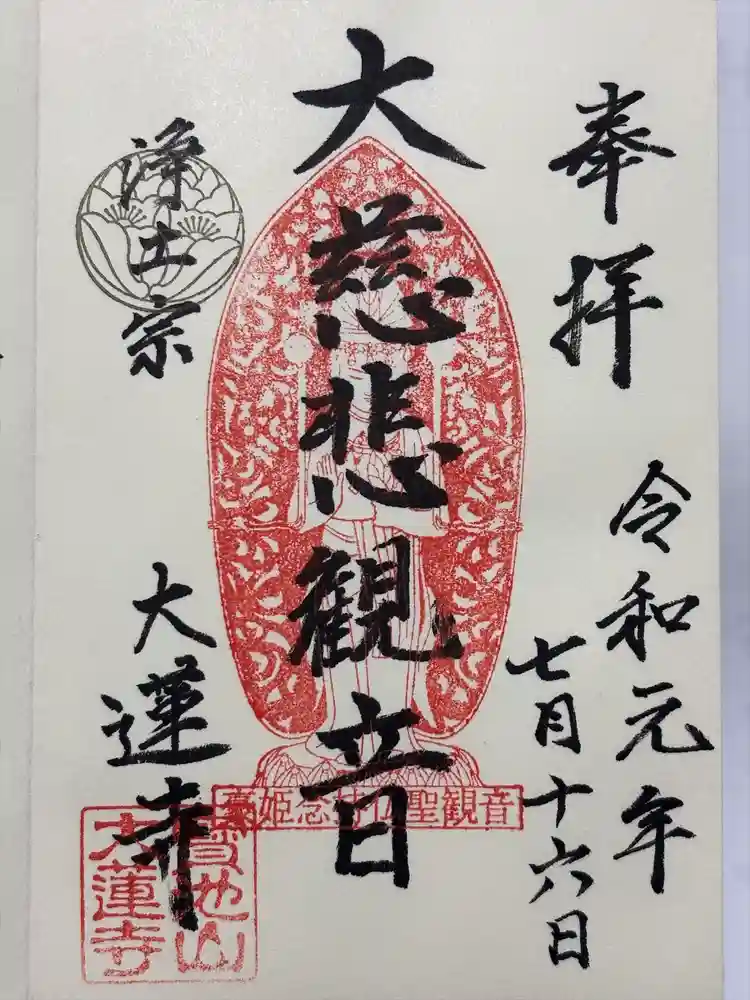 奉拝
令和元年
七月十六日
大慈悲観音
豪姫念持仏聖観音
浄土宗
大蓮寺
寶池山
大蓮寺